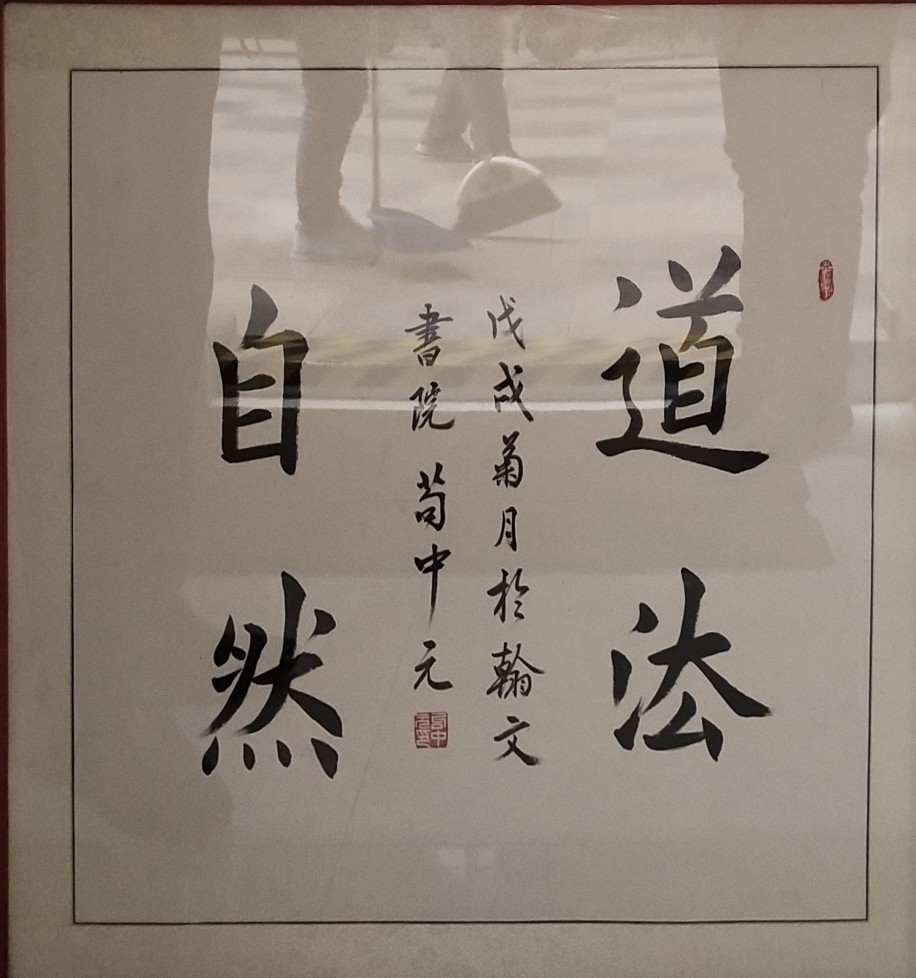 道法
戊戌菊月於翰文
書院 苟中元
自然